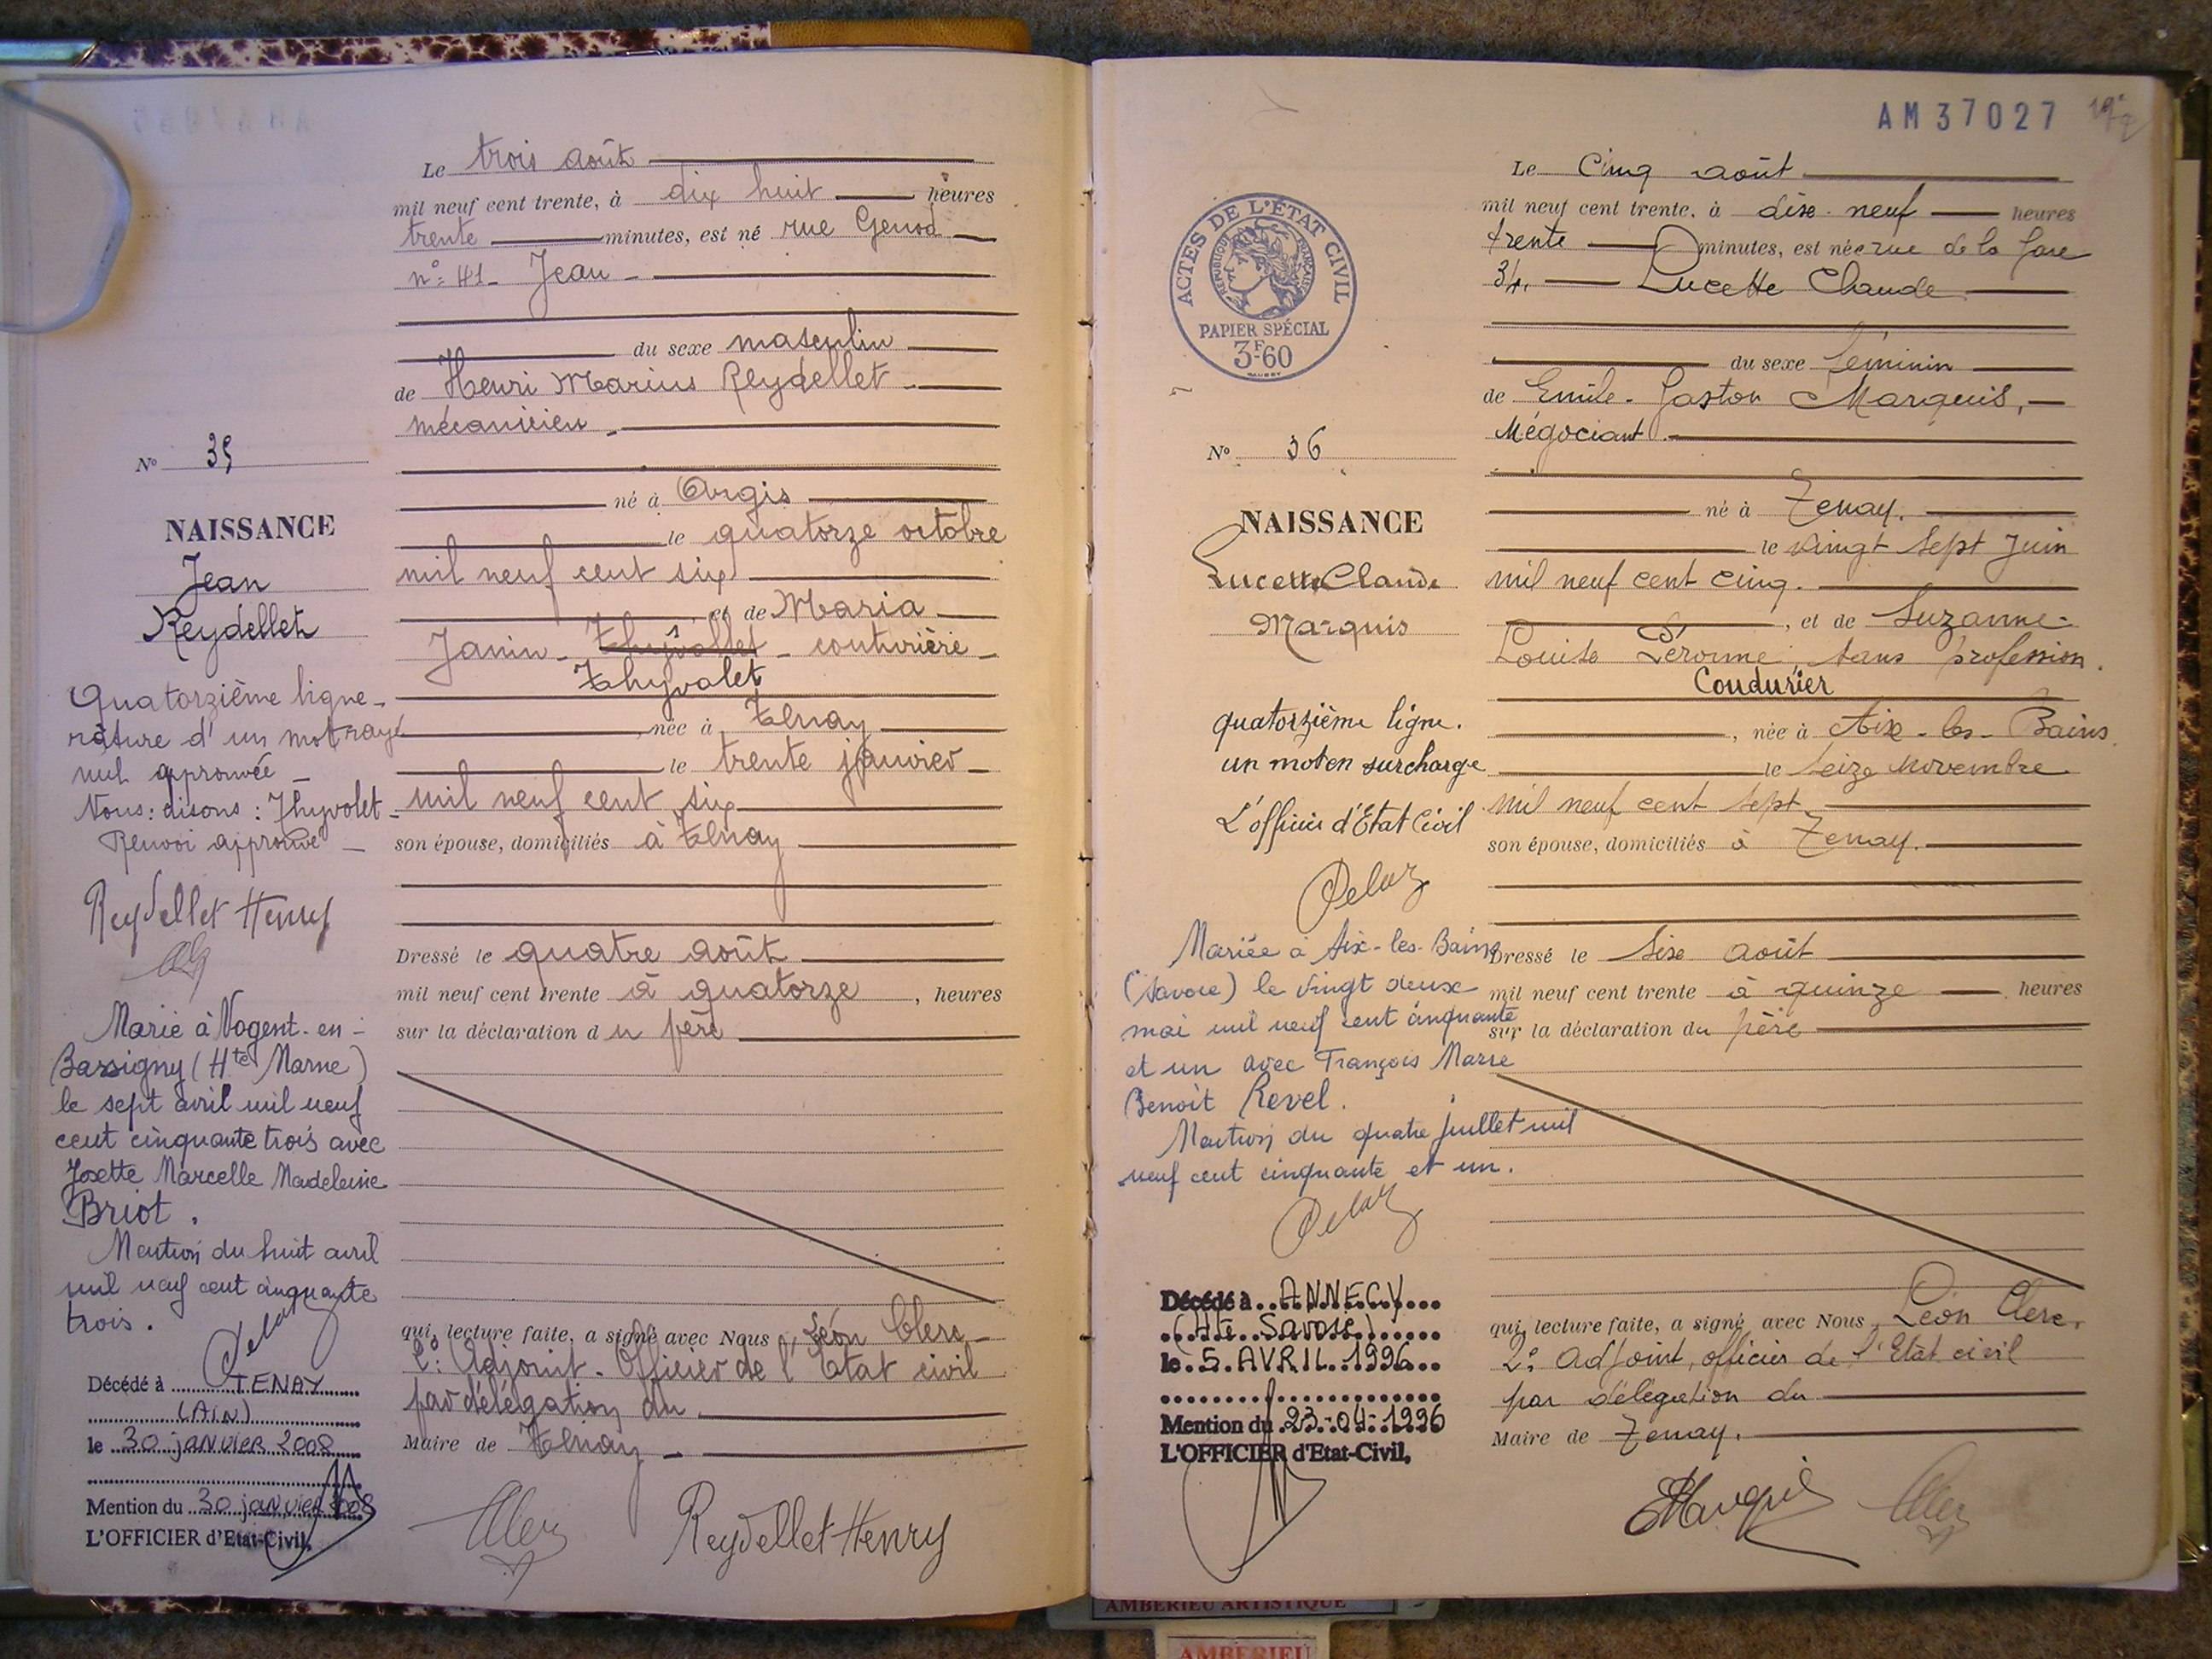 Le trois août
mil neuf cent trente, à dix huit heures
trente minutes, est né rue Genod
n°: 41- Jean
du sexe masculin
de Henri Marius Reydellet
mécanicien
né à Argis
le quatorze octobre
mil neuf cent six
et de Maria
Janin - Thyvollet - couturière
Thyvolet
née à Tenay
le trente janvier
mil neuf cent six
son épouse, domiciliés à Tenay
Dressé le quatre août
mil neuf cent trente à quatorze, heures
sur la déclaration du père
qui, lecture faite, a signé avec Nous Léon Clerc
2°: Adjoint - Officier de l'Etat civil
par délégation du
Maire de Tenay
Reydellet Henry
No 35
NAISSANCE
Jean
Reydellet
Quatorzième ligne
rature d'un mot rayé
nul approuvée
Nous: disons: Thyvolet
Renvoi approuvé
Reydellet Henry
Marié à Nogent-en-
Bassigny (Hte Marne)
le sept avril mil neuf
cent cinquante trois avec
Josette Marcelle Madeleine
Briot.
Mention du huit avril
mil neuf cent cinquante
trois.
Delaz
Décédé à TENAY
(AIN)
le 30 janvier 2008
Mention du 30 janvier 2008
L'OFFICIER d'Etat-Civil,
AM37027
ACTES DE L'ÉTAT CIVIL
RÉPUBLIQUE FRANÇAISE
PAPIER SPÉCIAL
3F60
Le Cinq août
mil neuf cent trente, à dix-neuf heures
trente minutes, est née rue de la Gare
34, Lucette Claude
du sexe féminin
de Emile-Gaston Marquis,
Négociant
né à Tenay.
le vingt sept Juin
mil neuf cent cinq.
, et de Suzanne-
Louise Péronne, sans profession.
Coudurier
, née à Aix-les-Bains.
le seize Novembre
mil neuf cent sept
son épouse, domiciliés à Tenay.
Dressé le six août
mil neuf cent trente à quinze heures
sur la déclaration du père
qui, lecture faite, a signé avec Nous Léon Clerc,
2° Adjoint, officier de l'Etat civil
par délégation du
Maire de Tenay.
EMarquis
No 36
NAISSANCE
Lucette Claude
Marquis
quatorzième ligne.
un mot en surcharge
L'officier d'Etat Civil
Delaz
Mariée à Aix-les-Bains
(Savoie) le vingt deux
mai mil neuf cent cinquante
et un avec François Marie
Benoit Revel.
Mention du quatre juillet mil
neuf cent cinquante et un.
Delaz
Décédé à ANNECY
(Hte Savoie)
le 5. AVRIL. 1996
Mention du 23-04-1996
L'OFFICIER d'Etat-Civil,
AMBERIEU ARTISTIQUE
AMBERIEU